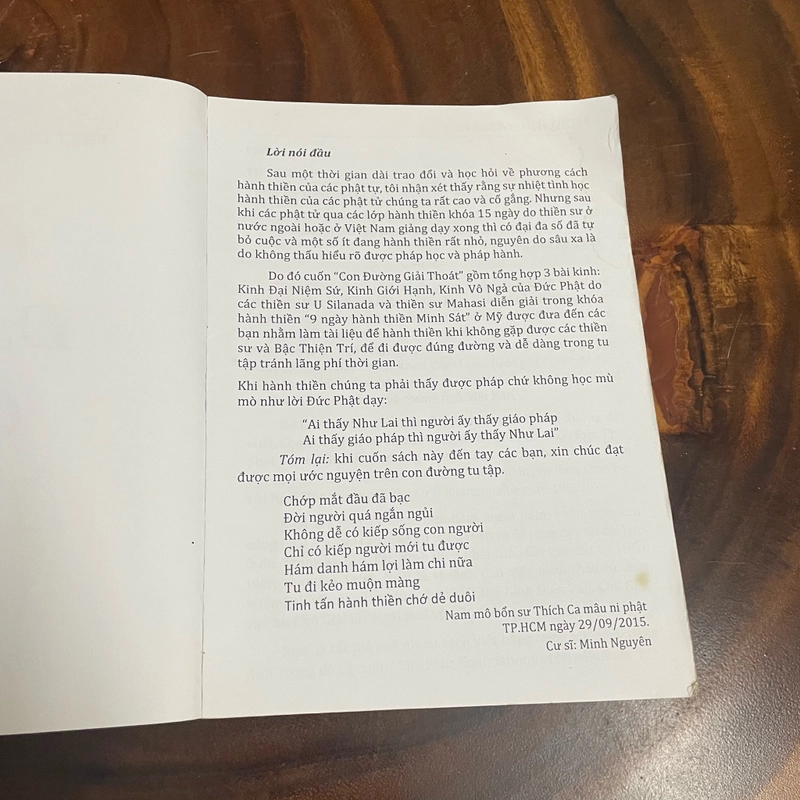 Lời nói đầu
Sau một thời gian dài trao đổi và học hỏi về phương cách
hành thiền của các phật tự, tôi nhận xét thấy rằng sự nhiệt tình học
hành thiền của các phật tử chúng ta rất cao và cố gắng. Nhưng sau
khi các phật tử qua các lớp hành thiền khóa 15 ngày do thiền sư ở
nước ngoài hoặc ở Việt Nam giảng dạy xong thì có đại đa số đã tự
bỏ cuộc và một số ít đang hành thiền rất nhỏ, nguyên do sâu xa là
do không thấu hiểu rõ được pháp học và pháp hành.
Do đó cuốn “Con Đường Giải Thoát” gồm tổng hợp 3 bài kinh:
Kinh Đại Niệm Sứ, Kinh Giới Hạnh, Kinh Vô Ngả của Đức Phật do
các thiền sư U Silanada và thiền sư Mahasi diễn giải trong khóa
hành thiền “9 ngày hành thiền Minh Sát” ở Mỹ được đưa đến các
bạn nhằm làm tài liệu để hành thiền khi không gặp được các thiền
sư và Bậc Thiện Trí, để đi được đúng đường và dễ dàng trong tu
tập tránh lãng phí thời gian.
Khi hành thiền chúng ta phải thấy được pháp chứ không học mù
mò như lời Đức Phật dạy:
“Ai thấy Như Lai thì người ấy thấy giáo pháp
Ai thấy giáo pháp thì người ấy thấy Như Lai”
Tóm lại: khi cuốn sách này đến tay các bạn, xin chúc đạt
được mọi ước nguyện trên con đường tu tập.
Chớp mắt đầu đã bạc
Đời người quá ngắn ngủi
Không dễ có kiếp sống con người
Chỉ có kiếp người mới tu được
Hám danh hám lợi làm chi nữa
Tu đi kẻo muộn màng
Tinh tấn hành thiền chớ dẻ duôi
Nam mô bổn sư Thích Ca mâu ni phật
TP.HCM ngày 29/09/2015.
Cư sĩ: Minh Nguyên